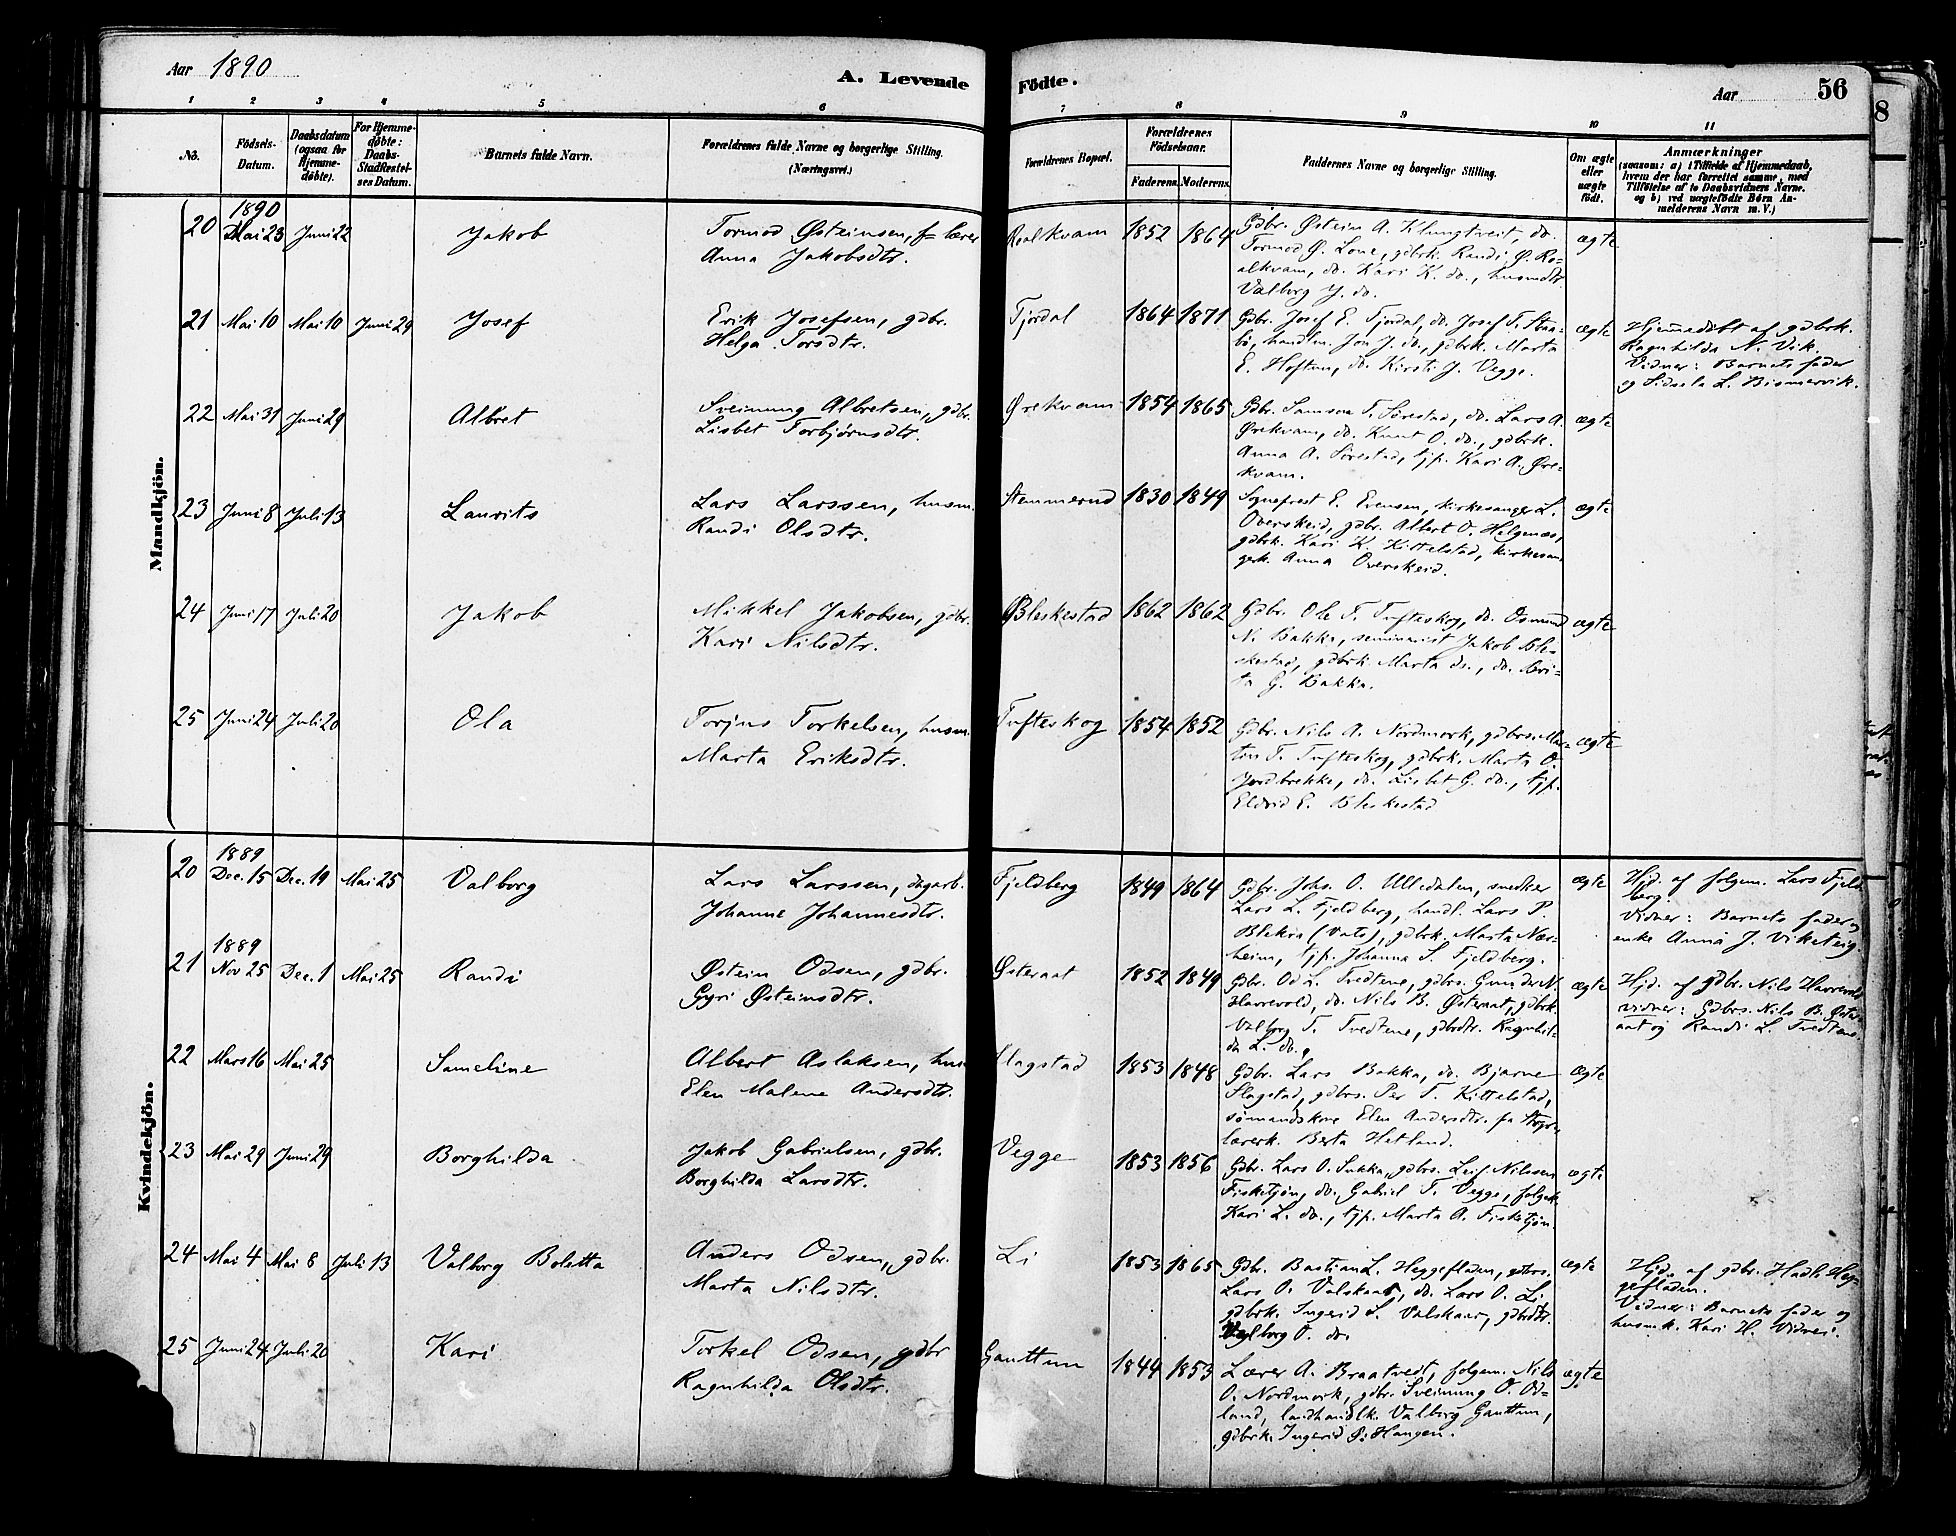 Aar 1890
A. Levende
Födte.
Aar
56
8
1 2 3 4 5 6 7 8 9 10 11
No.
Födsels-
Datum.
Daabsdatum
(ogsaa for
Hjemme-
döbte).
For Hjemme-
döbte:
Daabs-
Stadfæstel-
ses Datum.
Barnets fulde Navn.
Forældrenes fulde Navne og borgerlige Stilling.
(Næringsvei.)
Forældrenes Bopæl.
Forældrenes
Födselsaar.
Faderens. Moderens.
Faddernes Navne og borgerlige Stilling.
Om ægte
eller
uægte
födt.
Anmærkninger
(saasom: a) i Tilfælde af Hjemmedaab,
hvem der har forrettet samme, med
Tilföielse af to Daabsvidners Navne.
og b) ved uægtefödte Börn An-
melderens Navn m. V.)
Mandkjön.
1890
20 Mai 23 Juni 22 Jakob
Tormod Østeinsen, f= lærer
Anna Jakobsdtr.
Roalkvam 1852 1864
Gdbr. Østein A. Klungtveit, do.
Tormod Ø. Lone, gdbrk. Randi Ø. Ro=
alkvam, do. Kari K. do., husmdtr.
Valborg J. do.
ægte
21 Mai 10 Mai 10 Juni 29 Josef
Erik Josefsen, gdbr.
Helga Torsdtr.
Fjordal 1864 1871
Gdbr. Josef E. Fjordal, do. Josef T.
handlm. Jon J. do., gdbrk. Marta
E. Hoftun, do. Kirsti J. Vegge.
ægte
Hjemmedöbt af gdbrk.
Ragnhilda N. Vik.
Vidner: Barnets fader
og Sidsela L. Bismervik.
22 Mai 31 Juni 29 Albret
Sveinung Albretsen, gdbr.
Lisbet Torbjørnsdtr.
Ørekvam 1854 1865
Gdbr. Samson T. Sørestad, do. Lars A.
Ørekvam, do. Knut O. do., gdbrk.
Anna A. Sørestad, tjp. Kari A. Øre-
kvam.
ægte
23 Juni 8 Juli 13 Laurits
Lars Larssen, husm.
Randi Olsdtr.
Stemmerud 1830 1849
Sogneprest E. Evensen, kirkesanger L.
Overskeid, gdbr. Albert O. Helgenæs,
gdbrk. Kari K. Kittelstad, kirkesan-
gerk. Anna Overskeid.
ægte
24 Juni 17 Juli 20 Jakob
Mikkel Jakobsen, gdbr.
Kari Nilsdtr.
Bleskestad 1862 1862
Gdbr. Ole T. Tufteskog, do. Osmund
N. Bakka, seminarist Jakob Ble-
skestad, gdbrk. Marta do., do. Bri-
ta G. Bakka.
ægte
25 Juni 24 Juli 20 Ola
Torjus Torkelsen, husm.
Marta Eriksdtr.
Tufteskog 1854 1852
Gdbr. Nils A. Nordmork, gdbrs. Mar=
tin T. Tufteskog, gdbrk. Marta O.
Jordbrekke, do. Lisbet G. do., tjp.
Eldrid E. Bleskestad
ægte
Kvindekjön.
1889
20 Dec. 15 Dec. 19 Mai 25 Valborg
Lars Larssen, dagarb.
Johanne Johannesdtr.
Fjeldberg 1849 1864
Gdbr. Johs. O. Ulledalen, snedker
Lars L. Fjeldberg, handl. Lars P.
Blekra (Vats), gdbrk. Marta Nær-
heim, tjp. Johanna L. Fjeldberg.
ægte
Hjd. af folgem. Lars Fjeld
berg.
Vidner: Barnets fader og
enke Anna J. Viketeig.
1889
21 Nov 25 Dec. 1 Mai 25 Randi
Østein Odsen, gdbr.
Gyri Østeinsdtr.
Østeraat 1852 1849
Gdbr. Od L. Tvedtene, gdbrs. Gunder N.
Harrevold, do. Nils B. Østeraat, gdbrk.
Valborg T. Tvedtene, gdbrdtr. Ragnhil-
da L. do.
ægte
Hjd. af gdbr. Nils Harrevold
vidner: Gdbrs. Nils B. Øster
aat og Randi L. Tvedtene.
22 Mars 16 Mai 25 Sameline
Albert Aslaksen, hus
Elen Malene Andersdtr.
Slagstad 1853 1848
Gdbr. Lars Bakka, do. Bjarne
Slagstad, gdbrs. Per T. Kittelstad,
sømandskone Elen Andersdtr. fa
lærerk. Berta Hetland.
ægte
23 Mai 29 Juni 29 Borghilda
Jakob Gabrielsen, gdbr.
Borghilda Larsdtr.
Vegge 1853 1856
Gdbr. Lars O. Sukka, gdbrs. Leif Nilssen
Fisketjøn, do. Gabriel T. Vegge, folgek.
Kari L. do., tjp. Marta A. Fisketjøn.
ægte
24 Mai 4 Mai 8 Juli 13 Valborg Boletta
Anders Odsen, gdbr.
Marta Nilsdtr.
Li 1853 1865
Gdbr. Bastian L. Heggefladen, gdbrs.
Lars O. Valskaar, do. Lars O. Li
gdbrk. Ingerid L. Valskaar, gdbrdtr.
Valborg O. do.
ægte
Hjd. af gdbr. Hadle Heg-
gefladen.
Vidner: Barnets fader og
husmk. Kari H. Vidnes.
25 Juni 24 Juli 20 Kari
Torkel Odsen, gdbr
Ragnhilda Olsdtr.
Gauttun 1844 1853
Lærer A. Braatvedt, folgem. Nils
O. Nordmork, gdbr. Sveinung O. Od-
land, landhandlk. Valborg Gauttun,
gdbrk. Ingerid Ø. Haugen.
ægte